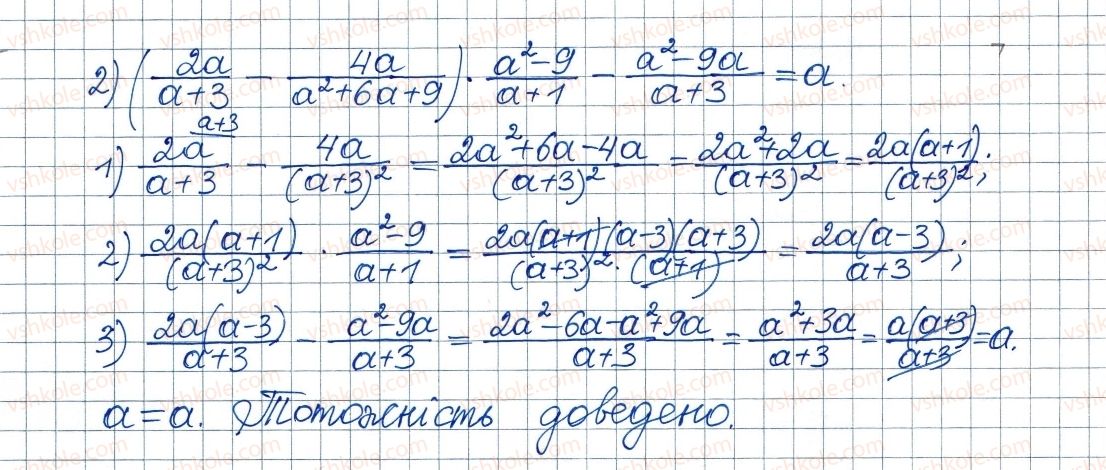 2) (2a/(a+3) - 4a/(a²+6a+9)) · (a²-9)/(a+1) - (a²-9a)/(a+3) = a.
1) 2a/(a+3) ^(a+3) - 4a/(a+3)² = (2a²+6a-4a)/(a+3)² = (2a²+2a)/(a+3)² = 2a(a+1)/(a+3)²;
2) 2a(a+1)/(a+3)² · (a²-9)/(a+1) = 2a(a+1)(a-3)(a+3)/((a+3)²·(a+1)) = 2a(a-3)/(a+3);
3) 2a(a-3)/(a+3) - (a²-9a)/(a+3) = (2a²-6a-a²+9a)/(a+3) = (a²+3a)/(a+3) = a(a+3)/(a+3) = a.
a=a. Тотожність доведено.
vshkole.com